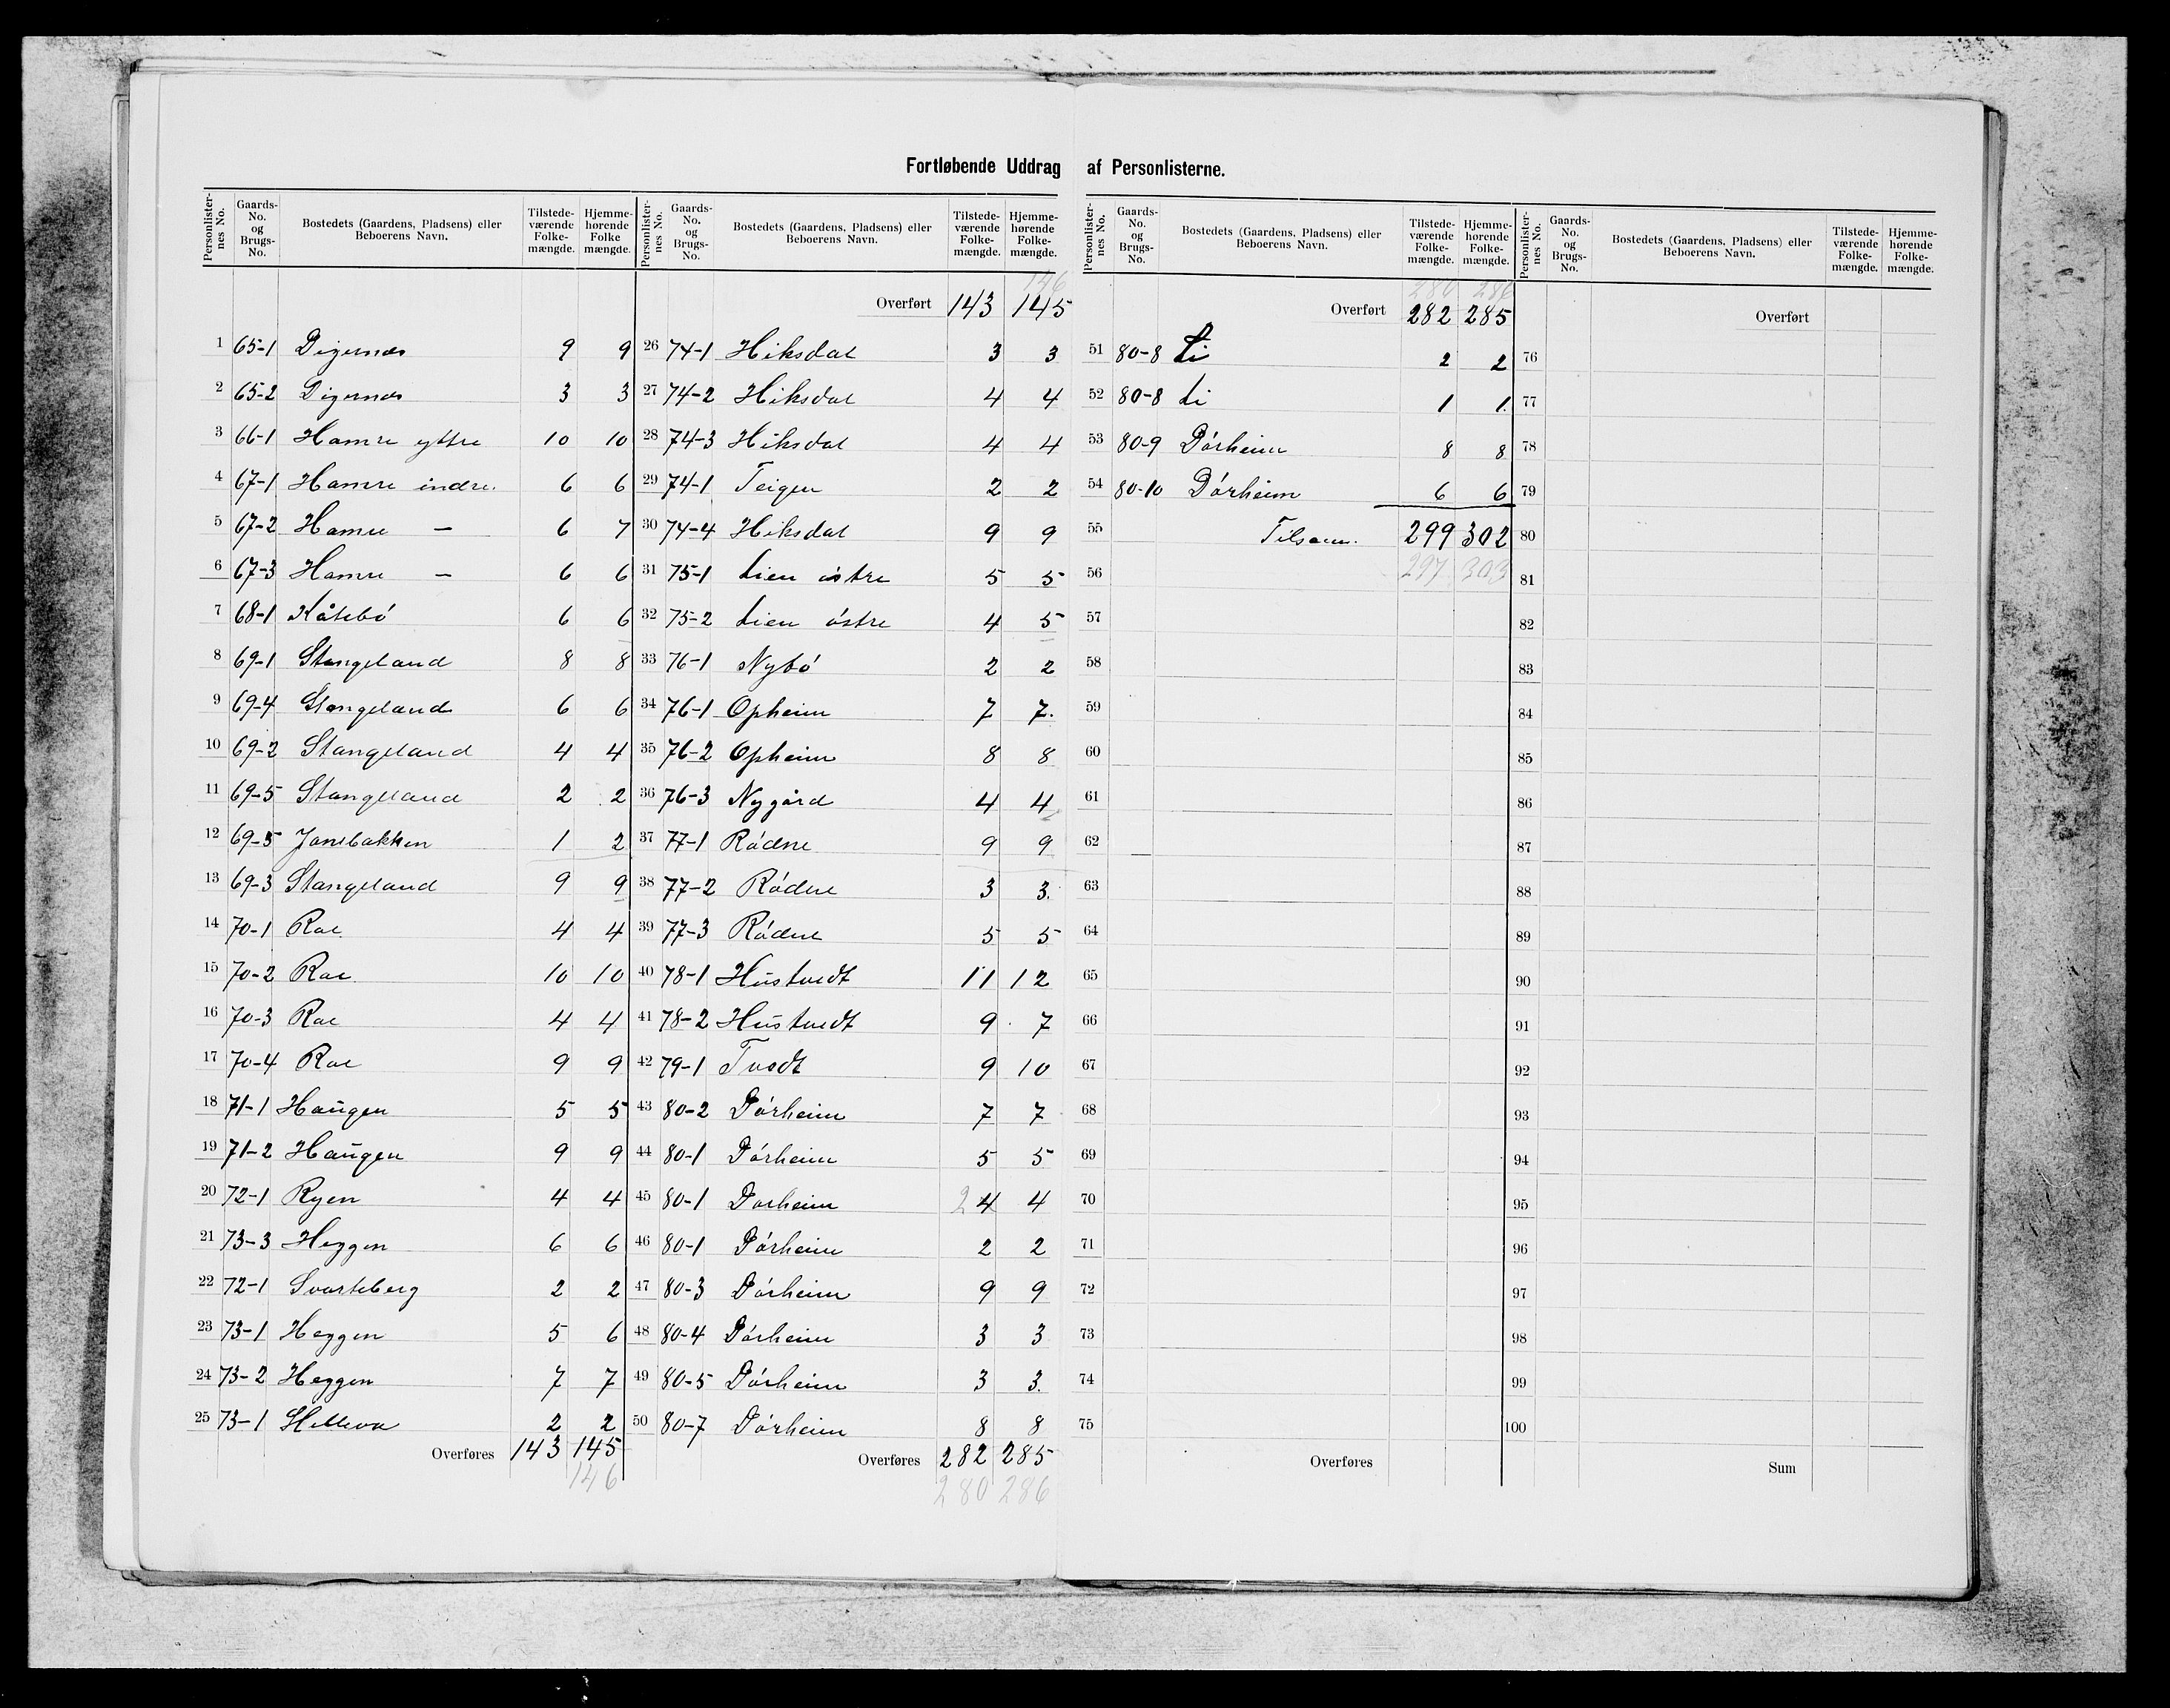 Fortløbende Uddrag af Personlisterne.
Personlister-nes No. Gaards-No. og Brugs-No. Bostedets (Gaardens, Pladsens) eller Beboerens Navn. Tilstede-værende Folke-mængde. Hjemme-hørende Folke mængde.
1 65-1 Digernes 9 9
2 65-2 Digernes 3 3
3 66-1 Hamre yttre 10 10
4 67-1 Hamre indre. 6 6
5 67-2 Hamre — 6 7
6 67-3 Hamre — 6 6
7 68-1 Kåtebó 6 6
8 69-1 Stangeland 8 8
9 69-4 Stangeland 6 6
10 69-2 Stangeland 4 4
11 69-5 Stangeland 2 2
12 69-5 Janebakken 1 2
13 69-3 Stangeland 9 9
14 70-1 Roe 4 4
15 70-2 Roe 10 10
16 70-3 Roe 4 4
17 70-4 Roe 9 9
18 71-1 Haugen 5 5
19 71-2 Haugen 9 9
20 72-1 Ryen 4 4
21 73-3 Heggen 6 6
22 72-1 Svarteberg 2 2
23 73-1 Heggen 5 6
24 73-2 Heggen 7 7
25 73-1 Helleva 2 2
Overføres 143 145
146
Personlister-nes No. Gaards-No. og Brugs-No. Bostedets (Gaardens, Pladsens) eller Beboerens Navn. Tilstede-værende Folke-mængde. Hjemme-hørende Folke-mængde.
146
Overført 143 145
26 74-1 Hiksdal 3 3
27 74-2 Hiksdal 4 4
28 74-3 Hiksdal 4 4
29 74-1 Teigen 2 2
30 74-4 Hiksdal 9 9
31 75-1 Lien óstre 5 5
32 75-2 Lien óstre 4 5
33 76-1 Nybó 2 2
34 76-1 Opheim 7 7.
35 76-2 Opheim 8 8
36 76-3 Nygård 4 4
37 77-1 Ródne 9 9
38 77-2 Ródne 3 3.
39 77-3 Ródne 5 5
40 78-1 Hustvedt 11 12
41 78-2 Hustvedt 9 7
42 79-1 Tvedt 9 10
43 80-2 Dórheim 7 7
44 80-1 Dórheim 5 5
45 80-1 Dorheim 2 4 4
46 80-1 Dórheim 2 2
47 80-3 Dórheim 9 9
48 80-4 Dórheim 3 3
49 80-5 Dórheim 3 3.
50 80-7 Dórheim 8 8
Overføres 282 285
280 286
Personlister-nes No. Gaards-No. og Brugs-No. Bostedets (Gaardens, Pladsens) eller Beboerens Navn. Tilstede-værende Folke-mængde. Hjemme-hørende Folke-mængde.
280 286
Overført 282 285
51 80-8 Li 2 2
52 80-8 Li 1 1.
53 80-9 Dórheim 8 8
54 80-10 Dórheim 6 6
55 Tilsam. 299 302
56 297 303
57
58
59
60
61
62
63
64
65
66
67
68
69
70
71
72
73
74
75
Overføres
Personlister-nes No. Gaards-No. og Brugs-No. Bostedets (Gaardens, Pladsens) eller Beboerens Navn. Tilstede-værende Folke-mængde. Hjemme-hørende Folke-mængde.
Overført
76
77
78
79
80
81
82
83
84
85
86
87
88
89
90
91
92
93
94
95
96
97
98
99
100
Sum